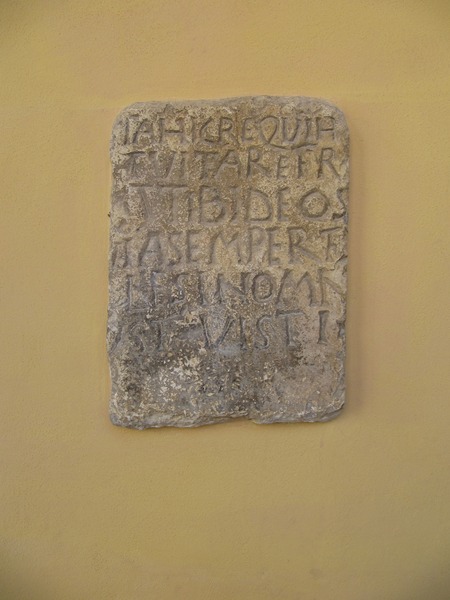 IAHICREQUIE
TVITAREFR
TTIBIDEOS
IASEMPERT
LESINOMN
ST VISTI